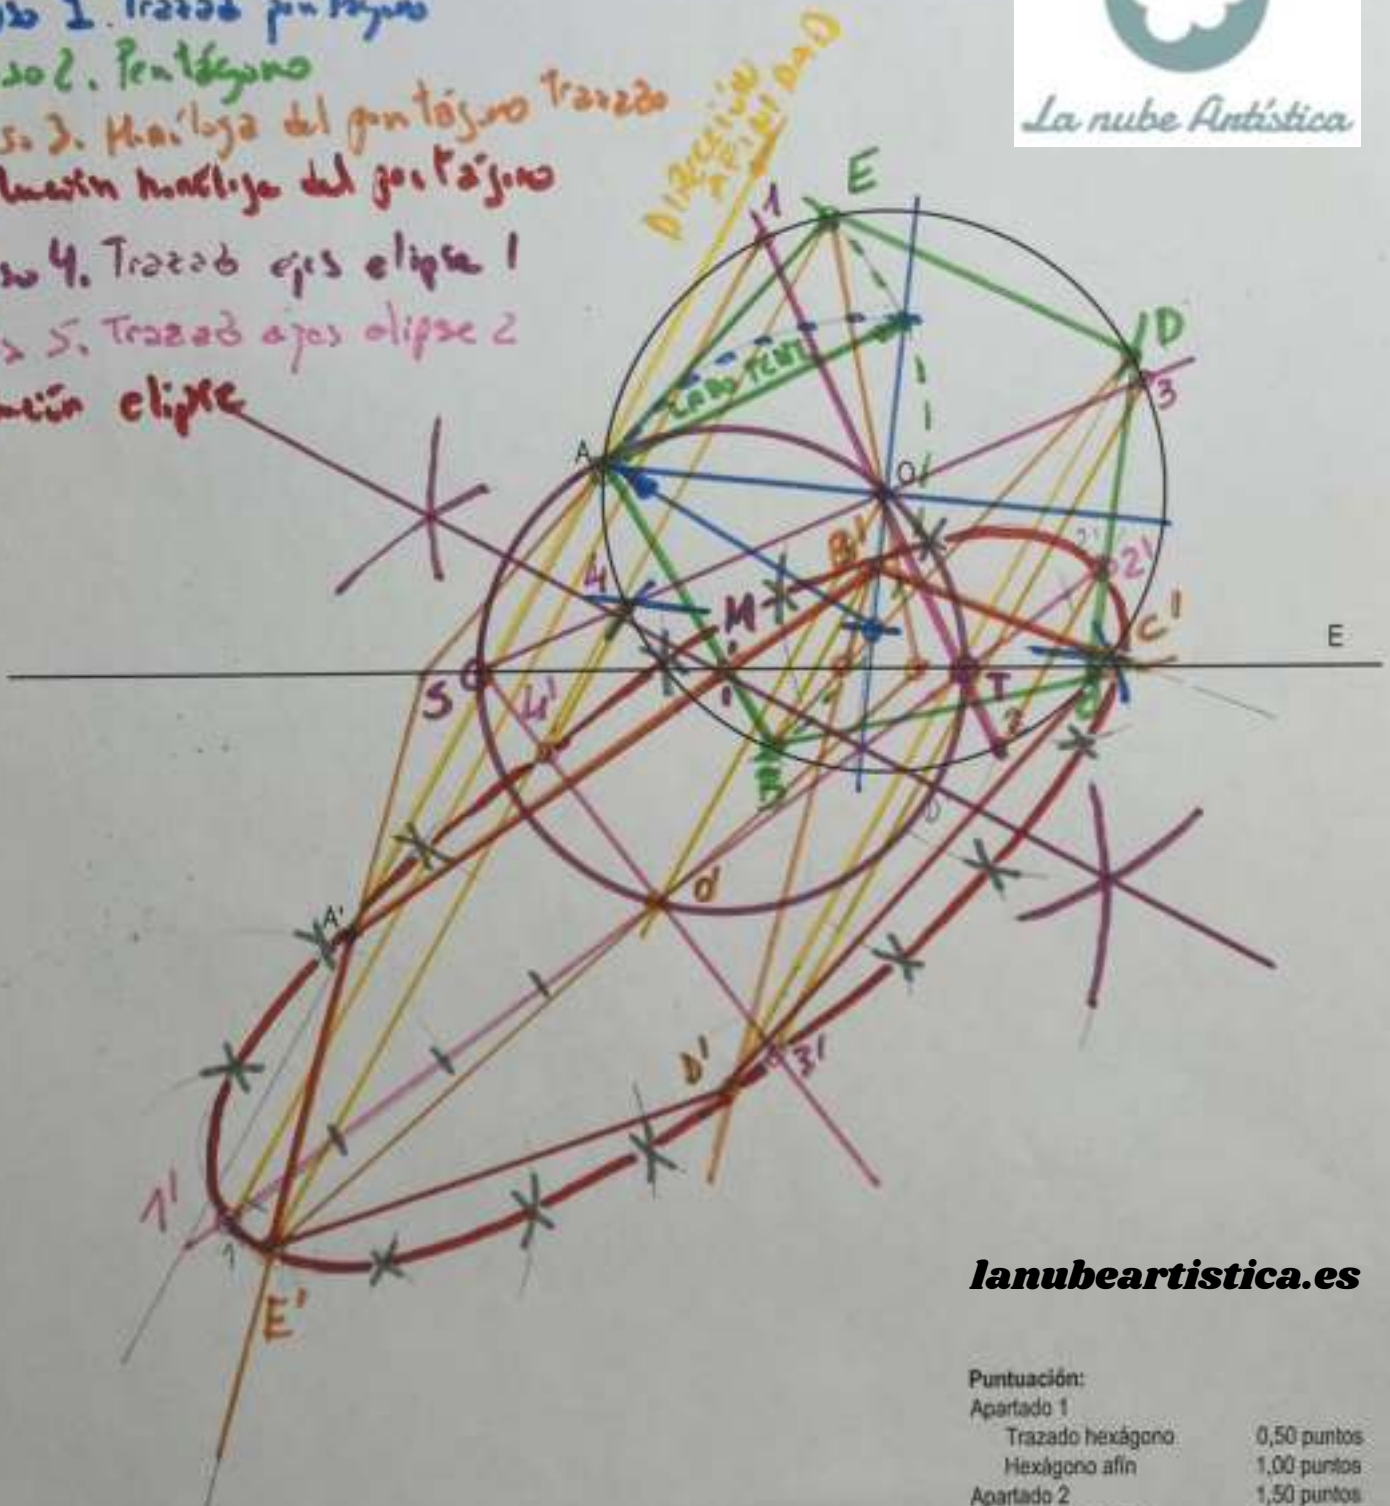 1. Trazado pentágono
2. Pentágono
3. Homóloga del pentágono Trazado
homóloga del pentágono
4. Trazado ejes elipse 1
5. Trazado ejes elipse 2
elipse
La nube Artística
DIRECCIÓN
AFINIDAD
1
E
D
3
LADO PENT
A
O
B'
2'
C'
E
4
M
S
4'
T
2
C
B
O'
A'
D'
3'
1'
1
E'
lanubeartistica.es
Puntuación:
Apartado 1
Trazado hexágono 0,50 puntos
Hexágono afín 1,00 puntos
Apartado 2 1,50 puntos